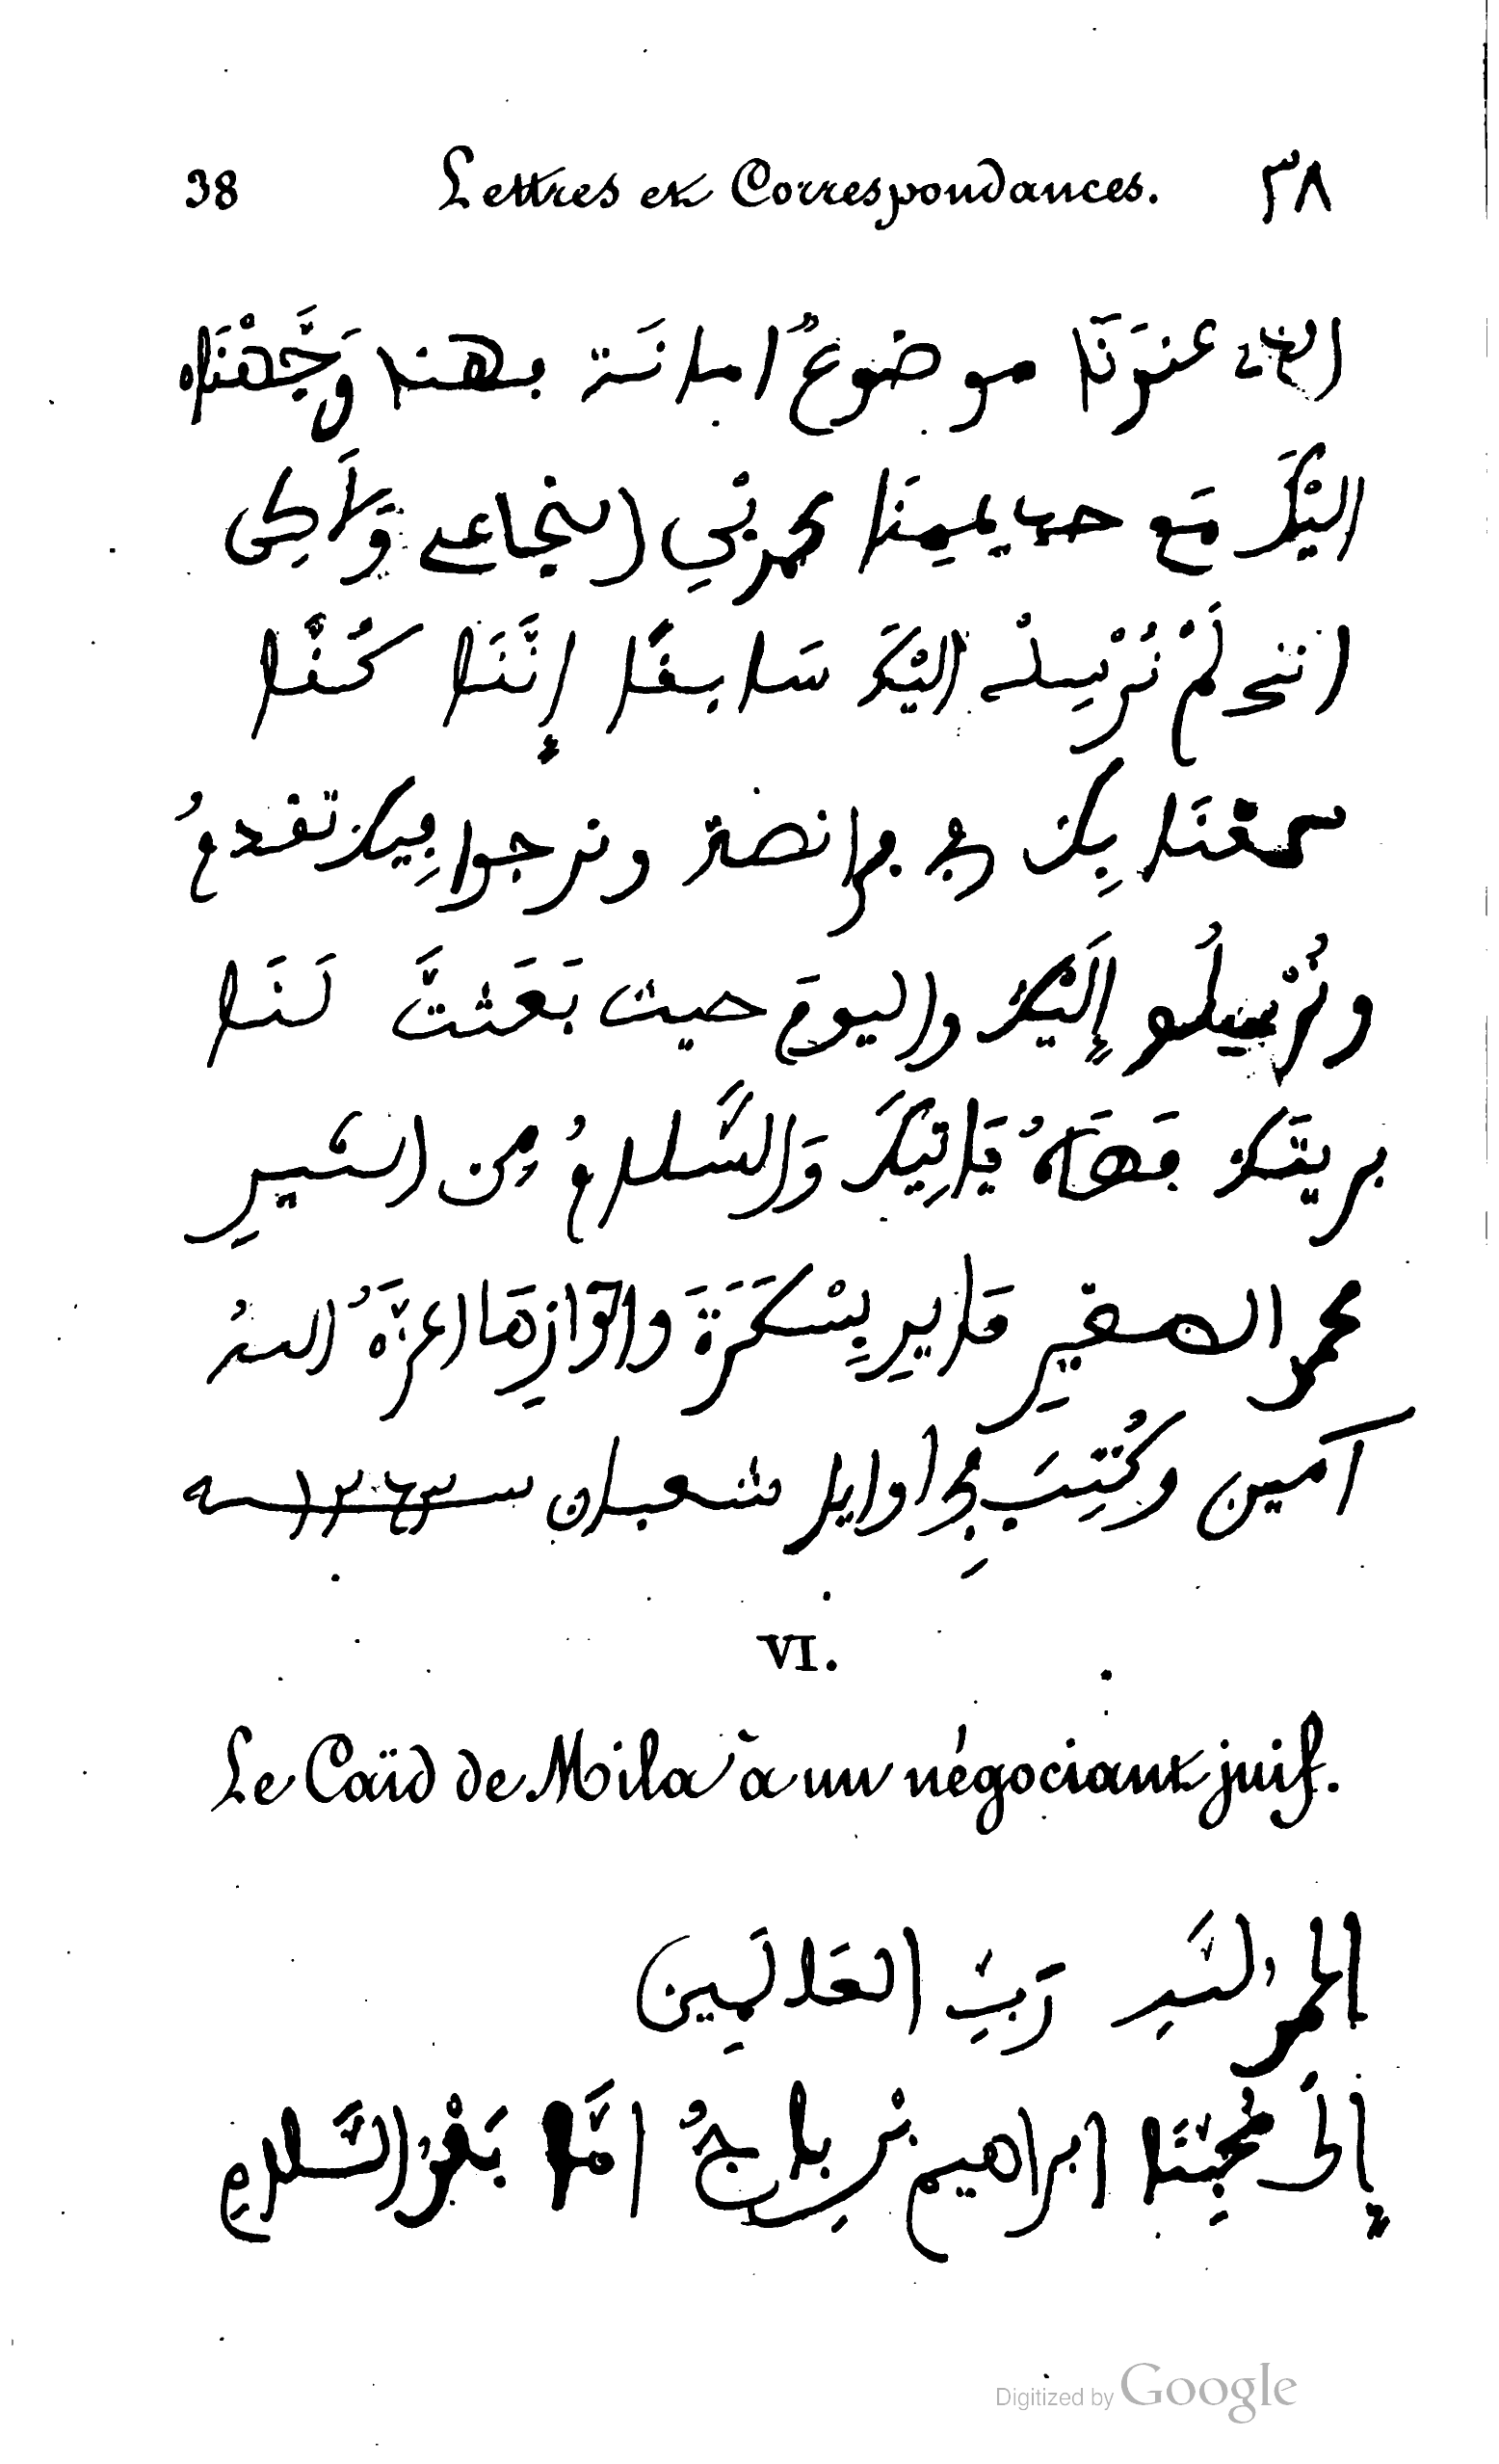 38 Lettres et Correspondances. ٣٨
عندنَا موضوعٌ امانَة فهذا وَجَّهْنَاه
اليْكَ مَع خديمِنَا محمد بْنِ وَلَاكِن
لَمْ نُرْسِله اليْكَ سَابقًا إِنَّنَا كُنَّا
سمعْنَا بِك ونرجوا تقدمُ
ونُرْسِلُه إِلَيْك واليومَ حيث بَعَثتَّ لَنَا
فَهَاهُ يَاتِيكَ وَالسَّلَامُ مِن السّيدِ
محمد الصغيرِ قايدِ بِسْكَرَةَ واحْوَازِهَا اعزَّهُ اللهُ
آمين وكُتِبَ فِي اوايل شعبان سنـ١٢٦٣ـة
VI.
Le Caïd de Mila à un négociant juif.
الحمدُ للّهِ رَبِّ العَالَمِين
إِلَى مُحِبِّنَا ابراهيم بْن امَّا بَعْدُ السَّلامِ
Digitized by Google